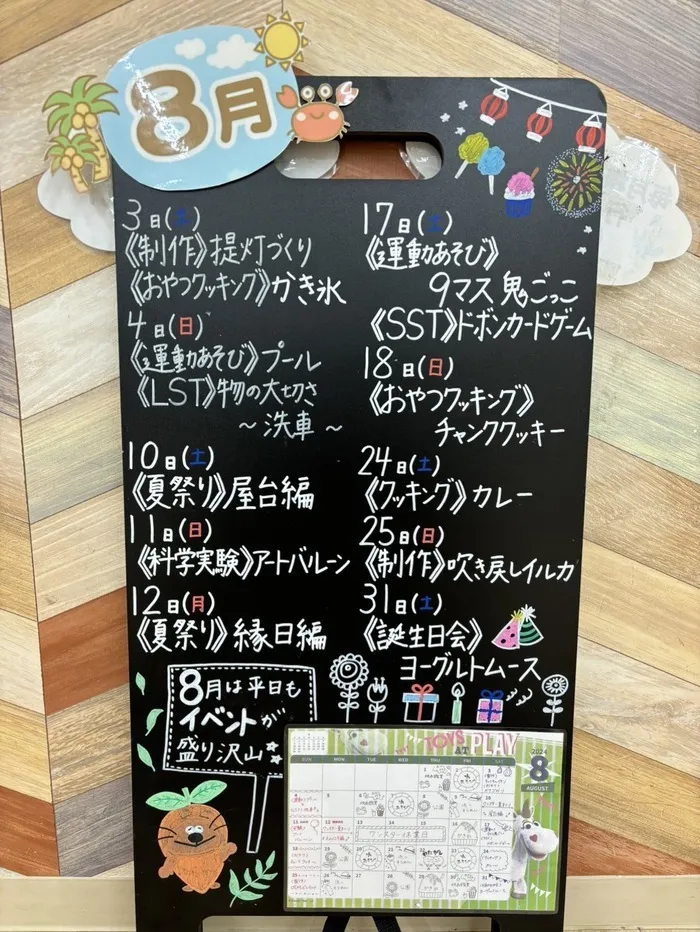 8月
3日(土)
《制作》提灯づくり
《おやつクッキング》かき氷
4日(日)
《運動あそび》プール
《LST》物の大切さ
～洗車～
10日(土)
《夏祭り》屋台編
11日(日)
《科学実験》アートバルーン
12日(月)
《夏祭り》縁日編
17日(土)
《運動あそび》
9マス鬼ごっこ
《SST》ドボンカードゲーム
18日(日)
《おやつクッキング》
チャンククッキー
24日(土)
《クッキング》カレー
25日(日)
《制作》吹き戻しイルカ
31日(土)
《誕生日会》
ヨーグルトムース
8月は平日も
イベントが
盛り沢山
TOYS AT PLAY
2024
8
AUGUST
SUN MON TUE WED THU FRI SAT
ワンスター休業日